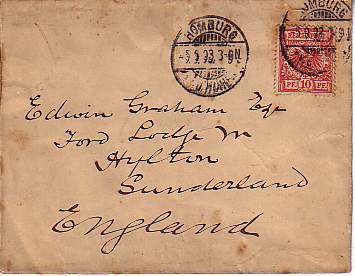 HOMBURG
-5.9.93.3-4N
v.d.HÖHE.
HOMBURG
5.9.93
PF 10 PF
Edwin Graham Esqe
Ford Lodge
Hylton
Sunderland
England